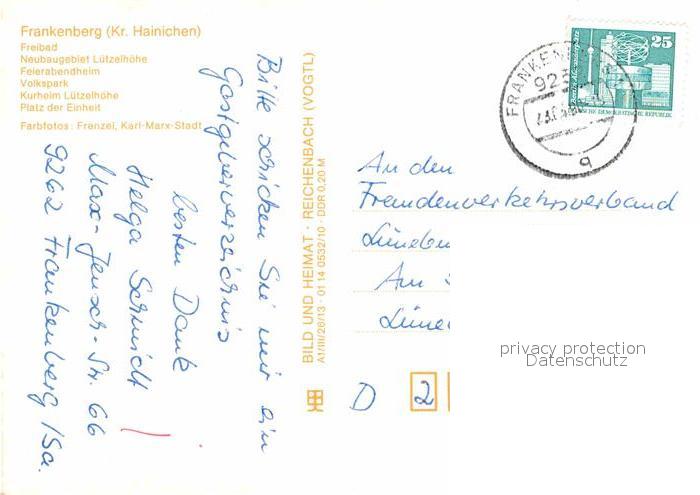 Frankenberg (Kr. Hainichen)
Freibad
Neubaugebiet Lützelhöhe
Feierabendheim
Volkspark
Kurheim Lützelhöhe
Platz der Einheit
Farbfotos: Frenzel, Karl-Marx-Stadt
Bitte schicken Sie mir ein
Gastgeberverzeichnis
besten Dank
Helga Schmidt
Max-Jensch-Str. 66
9262 Frankenberg/Sa.
BILD UND HEIMAT · REICHENBACH (VOGTL)
A1/III/26/13 · 01 14 0532/10 · DDR 0,20 M
25
DEUTSCHE DEMOKRATISCHE REPUBLIK
FRANKEN
92
q
An den
Fremdenverkehrsverband
Lünebu
Am
Lüne
D 2
privacy protection
Datenschutz